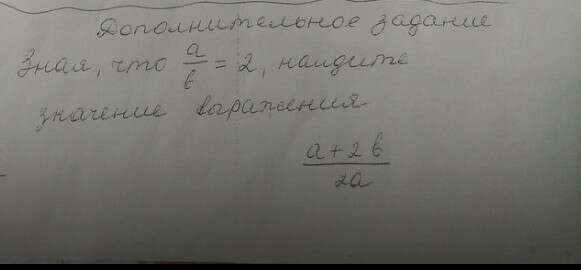 Дополнительное задание
Зная, что a/b = 2, найдите
значение выражения
a+2b/2a